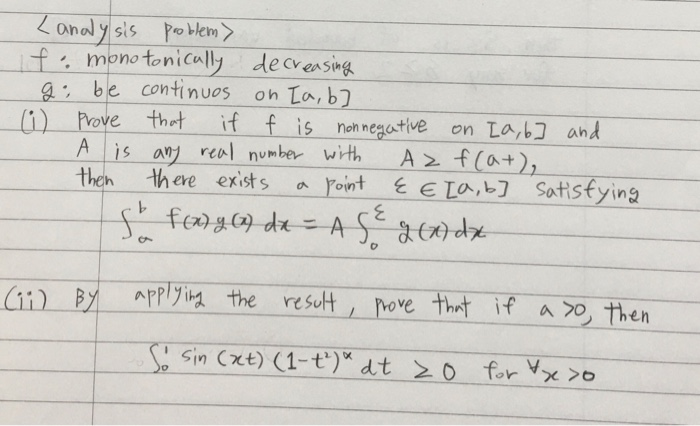 <analysis problem>
f : monotonically decreasing
g : be continuos on [a,b]
(i) Prove that if f is nonnegative on [a,b] and
A is any real number with A ≥ f(a+),
then there exists a point ε ∈ [a,b] satisfying
∫_a^b f(x)g(x) dx = A ∫_0^ε g(x)dx
(ii) By applying the result, prove that if a >0, then
∫_0^1 sin (xt) (1-t²)^α dt ≥ 0 for ∀x >0